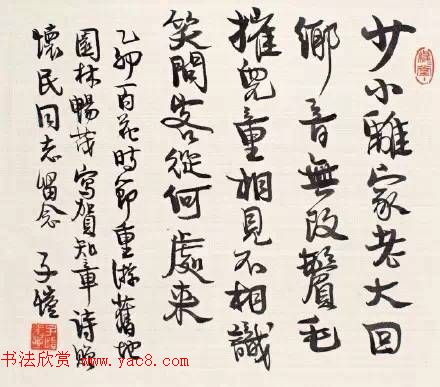 少小離家老大回
鄉音無改鬢毛
摧兒童相見不相識
笑問客從何處来
乙卯百花時節重游舊地
園林暢茂寫賀知章詩贈
懷民同志留念 子愷
书法欣赏 www.yac8.com